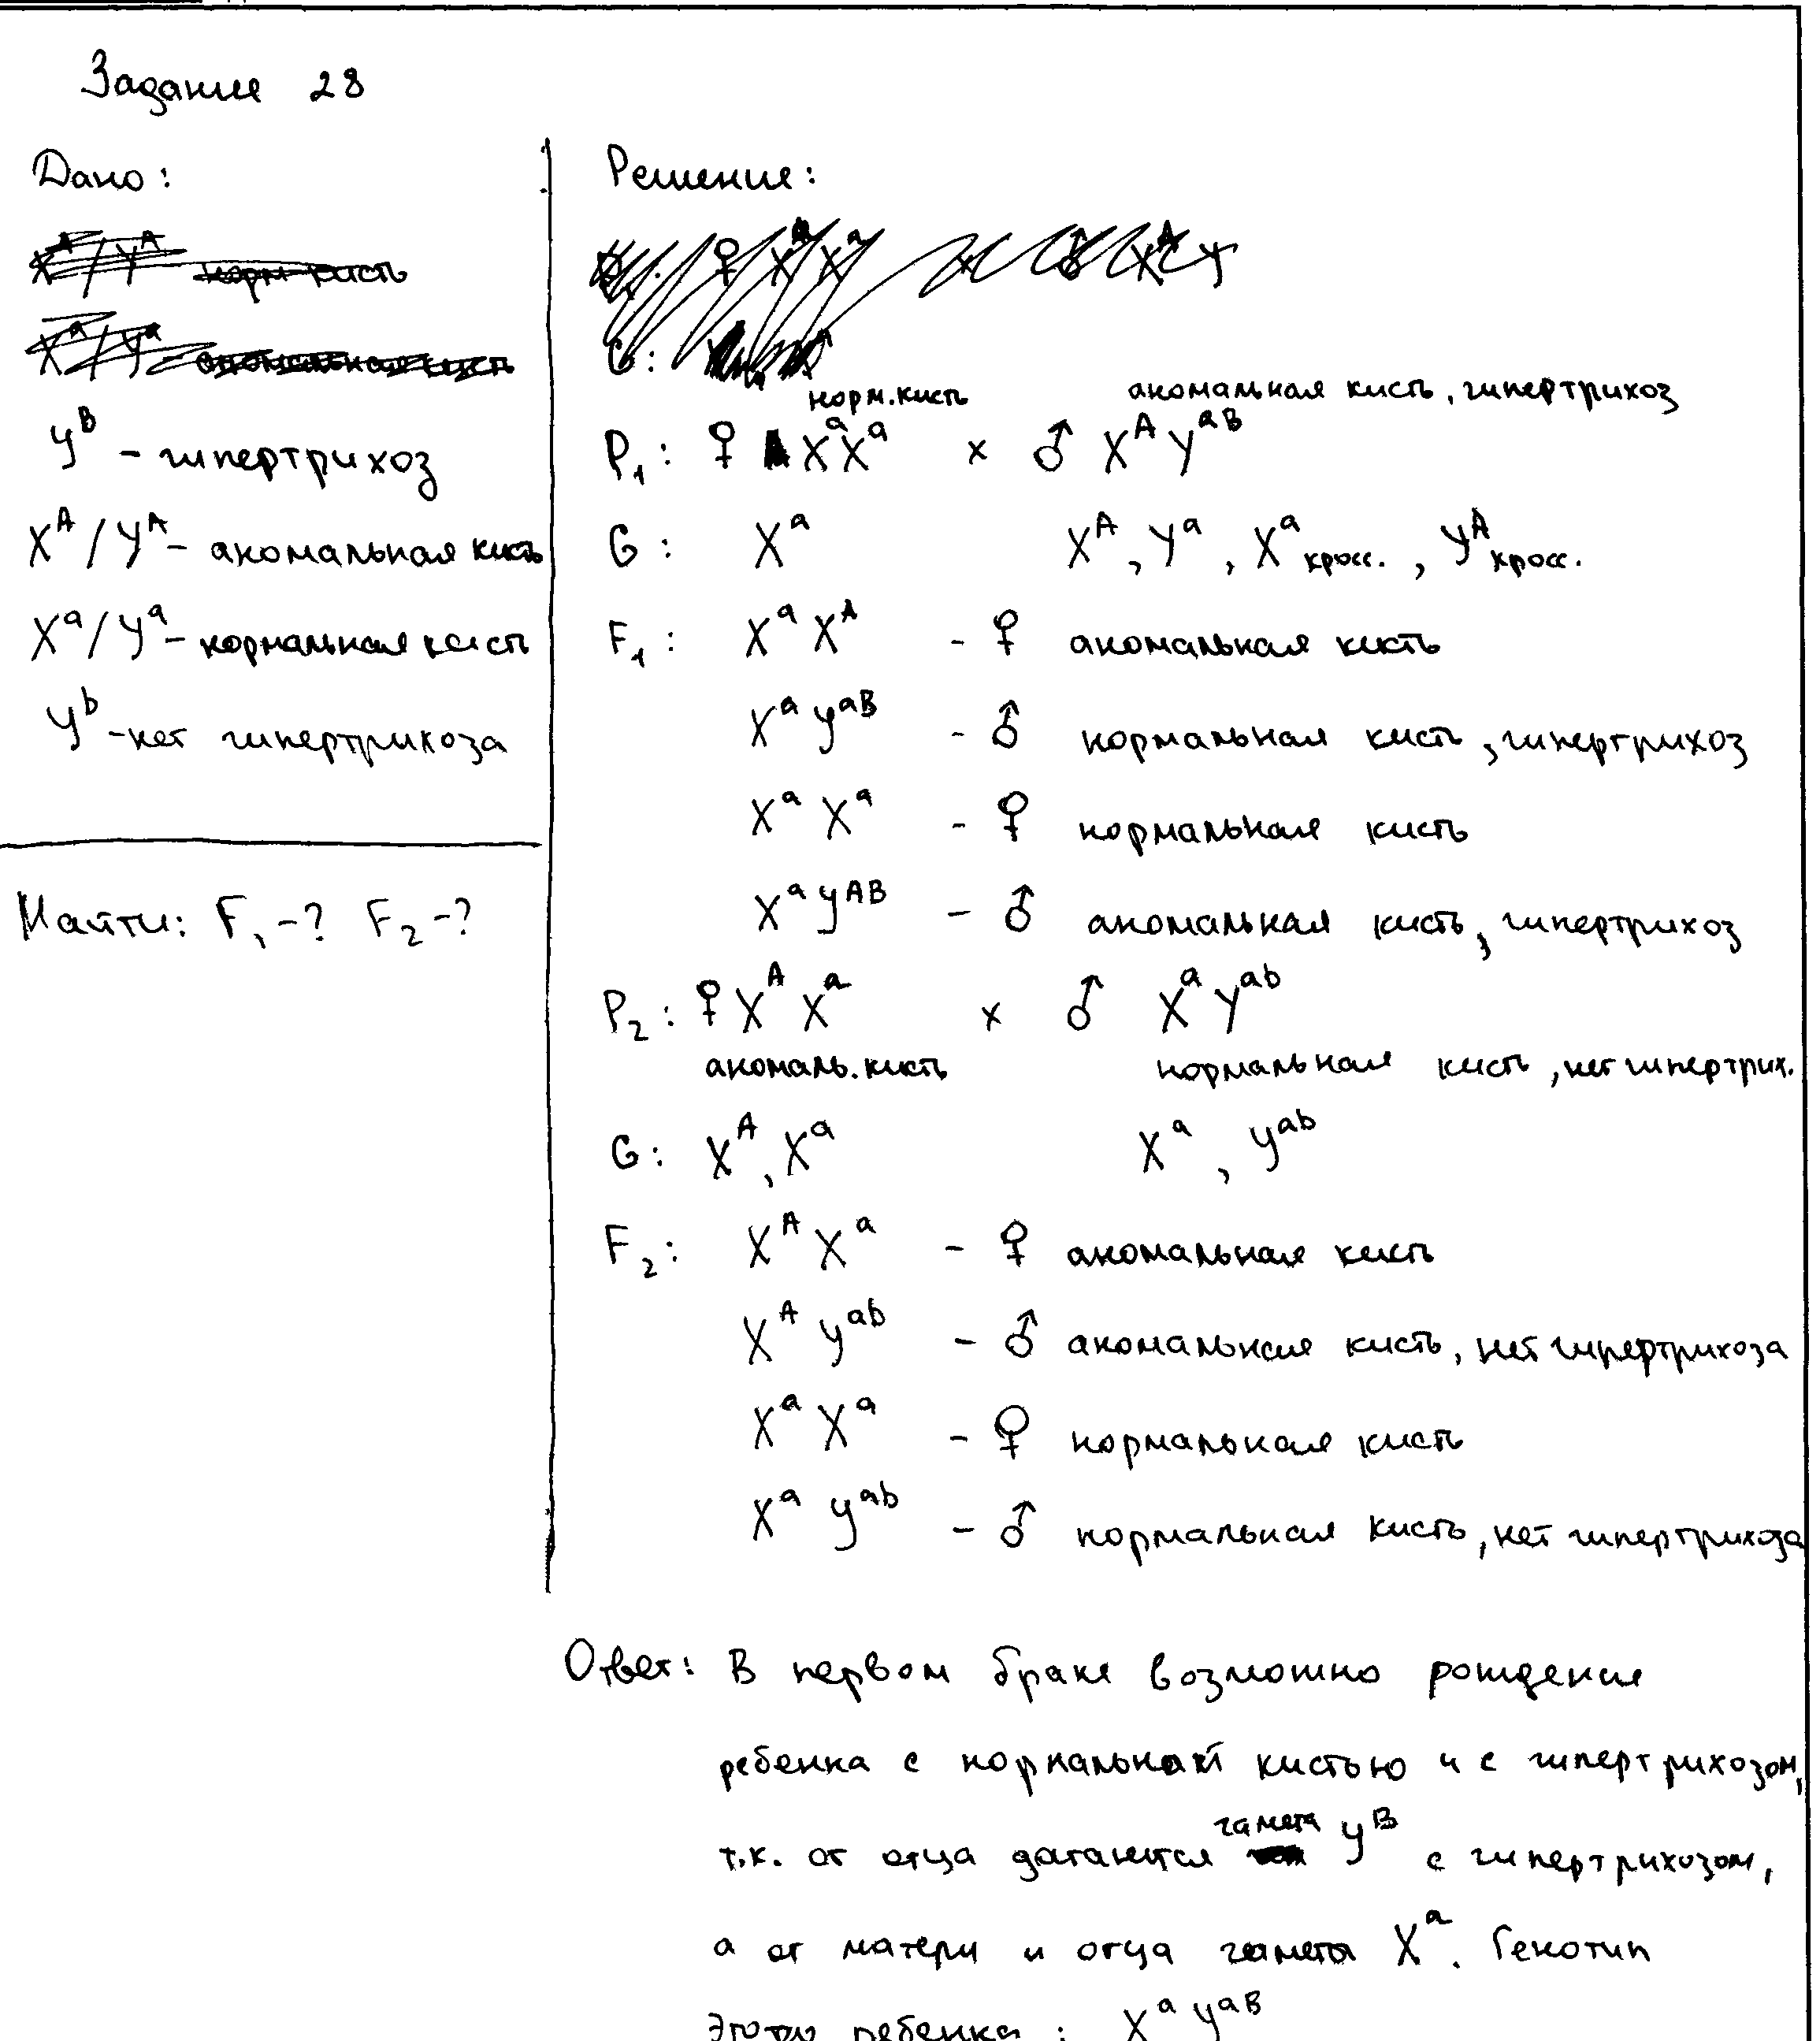 Задание 28
Дано:
X^A / Y^A норм. кисть
X^a / Y^a - аномальная кисть
Y^B - гипертрихоз
X^A / Y^A - аномальная кисть
X^a / Y^a - нормальная кисть
Y^b - нет гипертрихоза
Найти: F₁ -? F₂ -?
Решение:
♀ X^a X^a x ♂ X^A Y
G:
норм. кисть аномальная кисть, гипертрихоз
P₁: ♀ X^a X^a x ♂ X^A Y^aB
G: X^a X^A, Y^a, X^a кросс., Y^A кросс.
F₁: X^a X^A - ♀ аномальная кисть
X^a Y^aB - ♂ нормальная кисть, гипертрихоз
X^a X^a - ♀ нормальная кисть
X^a Y^AB - ♂ аномальная кисть, гипертрихоз
P₂: ♀ X^A X^a x ♂ X^a Y^ab
аномаль. кисть нормальная кисть, нет гипертрих.
G: X^A, X^a X^a, Y^ab
F₂: X^A X^a - ♀ аномальная кисть
X^A Y^ab - ♂ аномальная кисть, нет гипертрихоза
X^a X^a - ♀ нормальная кисть
X^a Y^ab - ♂ нормальная кисть, нет гипертрихоза
Ответ: В первом браке возможно рождение
ребенка с нормальной кистью и с гипертрихозом,
т.к. от отца достанется гамета Y^B с гипертрихозом,
а от матери и отца гамета X^a. Генотип
этого ребенка: X^a Y^aB